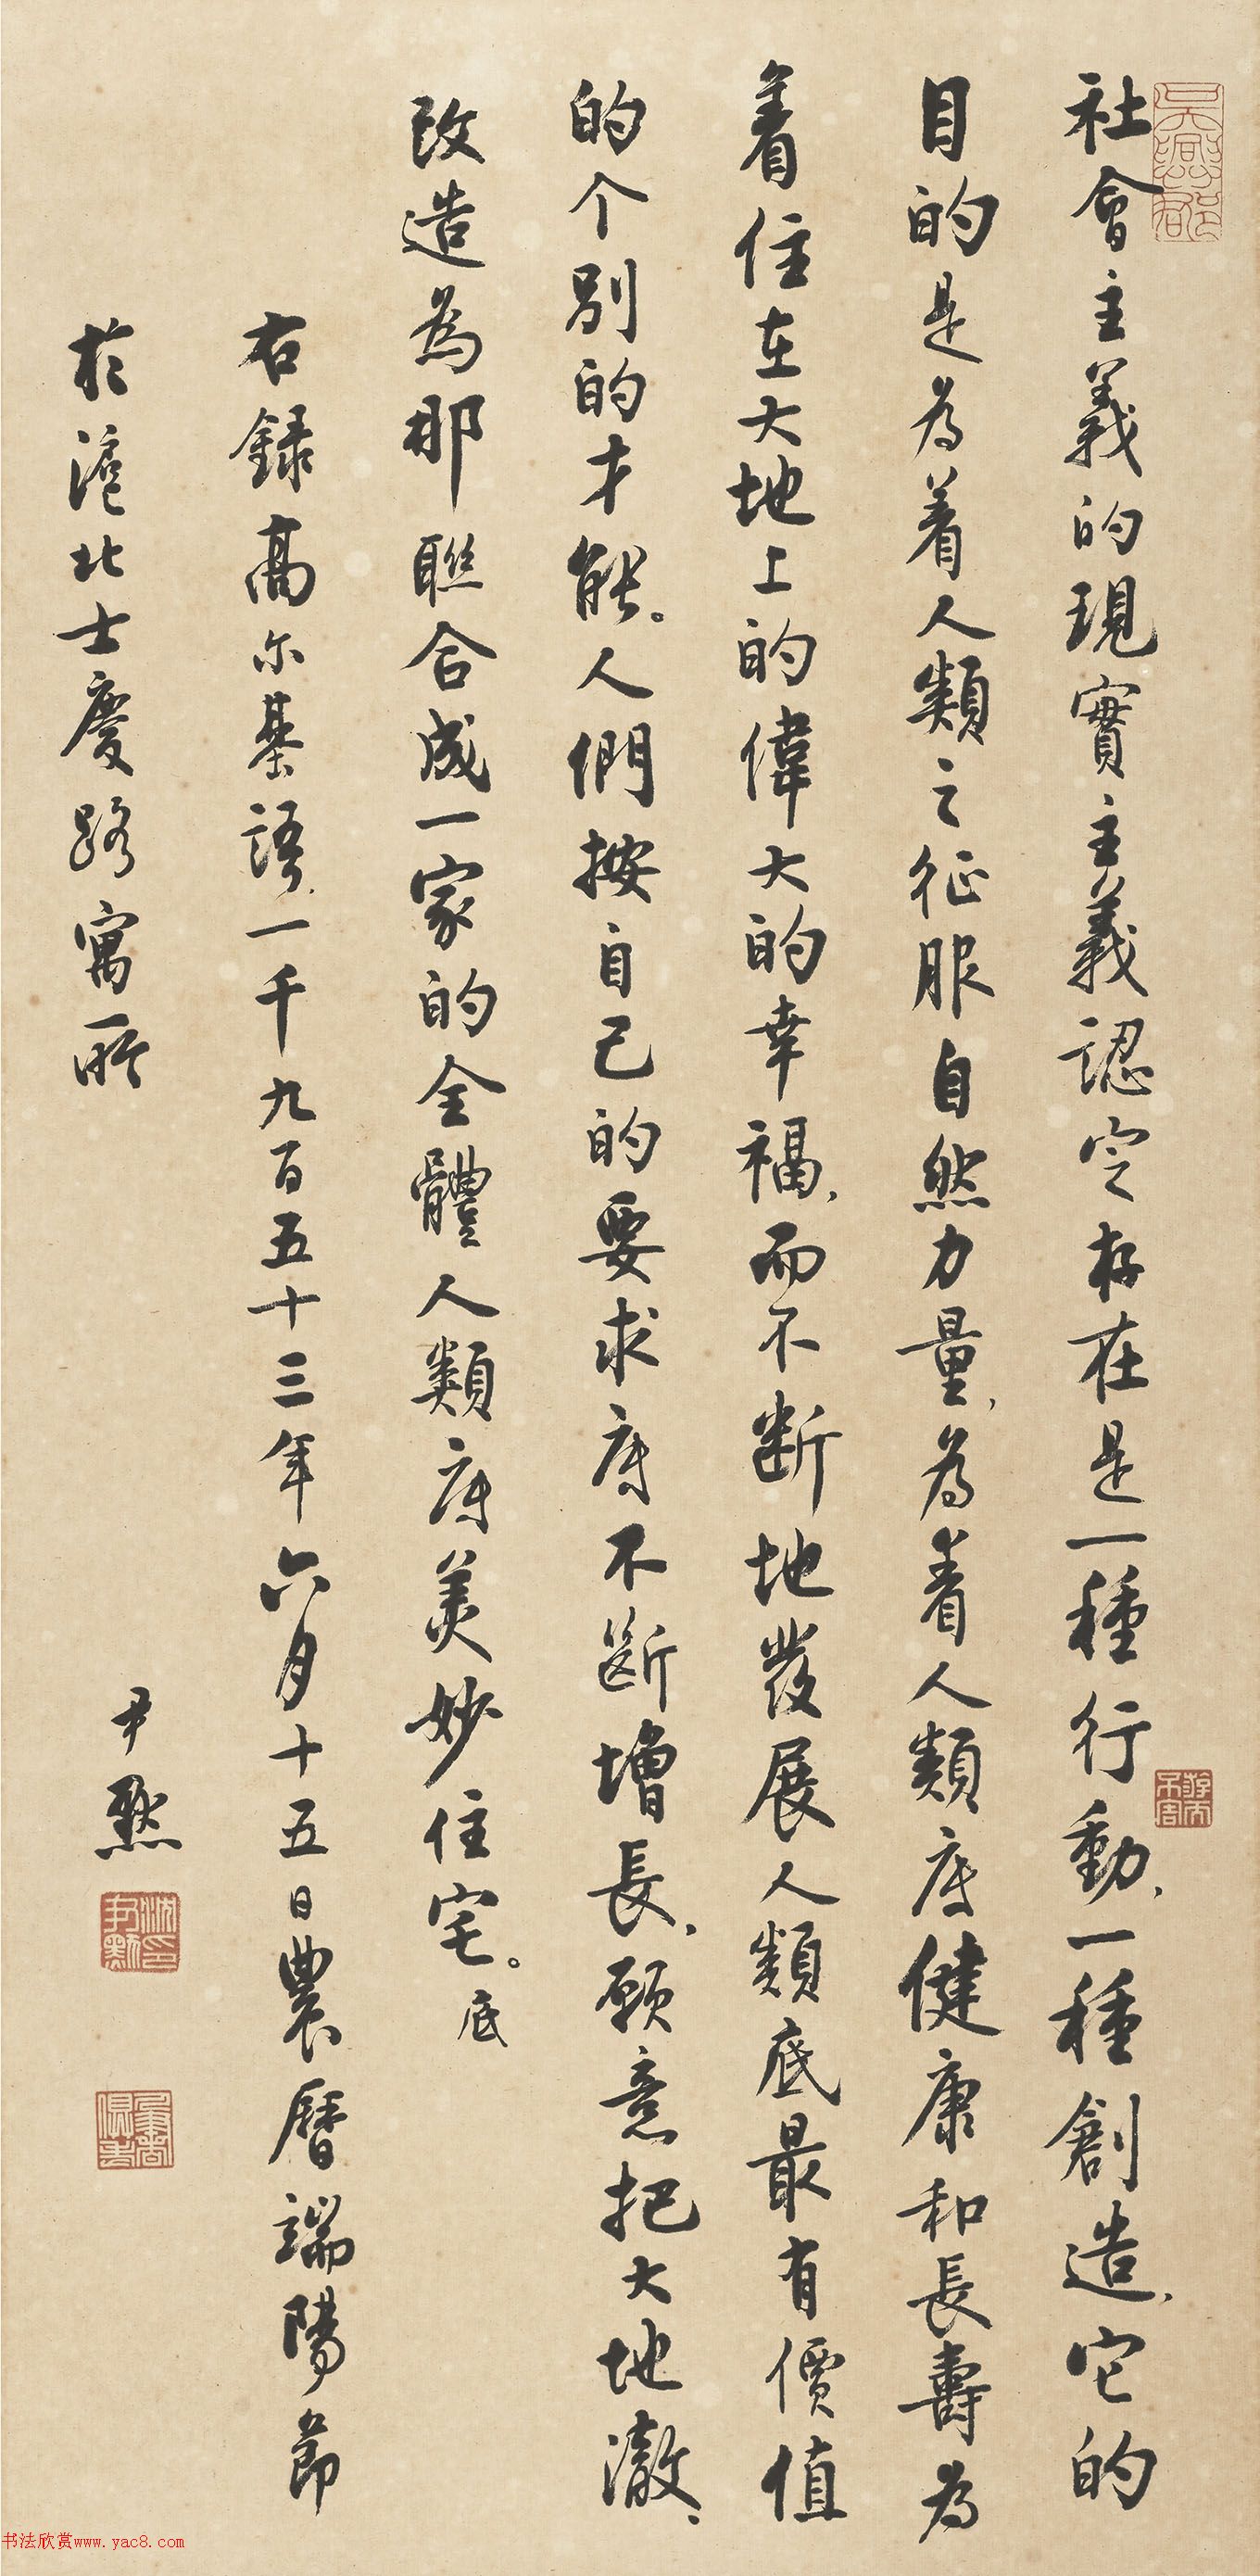 社會主義的現實主義認定存在是一種行動,一種創造,它的
目的是为着人類之征服自然力量,为着人類底健康和長壽为
着住在大地上的偉大的幸福,而不断地發展人類底最有價值
的个別的才能。人們按自己的要求底不断增長,願意把大地澈、
改造為那聯合成一家的全體人類底美妙住宅。底
右録高尔基語,一千九百五十三年六月十五日農曆端陽節
於滬北士慶路寓所
尹默
沈尹默印
书法欣赏www.yac8.com